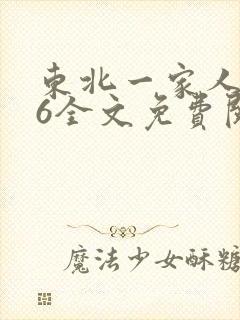 東北一家人
6全文免費閱
魔法少女酥糖